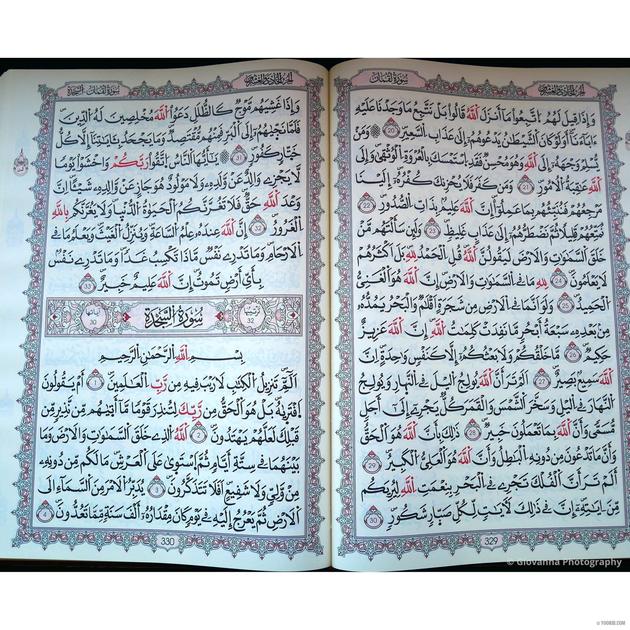 الجزء الحادي والعشرون
سورة لقمان
وَإِذَا قِيلَ لَهُمُ اتَّبِعُوا مَا أَنزَلَ اللَّهُ قَالُوا بَلْ نَتَّبِعُ مَا وَجَدْنَا عَلَيْهِ
ءَابَاءَنَا أَوَلَوْ كَانَ الشَّيْطَانُ يَدْعُوهُمْ إِلَى عَذَابِ السَّعِيرِ 20 وَمَنْ
يُسْلِمْ وَجْهَهُ إِلَى اللَّهِ وَهُوَ مُحْسِنٌ فَقَدِ اسْتَمْسَكَ بِالْعُرْوَةِ الْوُثْقَى وَإِلَى
اللَّهِ عَاقِبَةُ الْأُمُورِ 21 وَمَن كَفَرَ فَلَا يُحْزِنكَ كُفْرُهُ إِلَيْنَا
مَرْجِعُهُمْ فَنُنَبِّئُهُم بِمَا عَمِلُوا إِنَّ اللَّهَ عَلِيمٌ بِذَاتِ الصُّدُورِ 22
نُمَتِّعُهُمْ قَلِيلًا ثُمَّ نَضْطَرُّهُمْ إِلَى عَذَابٍ غَلِيظٍ 23 وَلَئِن سَأَلْتَهُم مَّنْ
خَلَقَ السَّمَاوَاتِ وَالْأَرْضَ لَيَقُولُنَّ اللَّهُ قُلِ الْحَمْدُ لِلَّهِ بَلْ أَكْثَرُهُمْ
لَا يَعْلَمُونَ 24 لِلَّهِ مَا فِي السَّمَاوَاتِ وَالْأَرْضِ إِنَّ اللَّهَ هُوَ الْغَنِيُّ
الْحَمِيدُ 25 وَلَوْ أَنَّمَا فِي الْأَرْضِ مِن شَجَرَةٍ أَقْلَامٌ وَالْبَحْرُ يَمُدُّهُ
مِن بَعْدِهِ سَبْعَةُ أَبْحُرٍ مَّا نَفِدَتْ كَلِمَاتُ اللَّهِ إِنَّ اللَّهَ عَزِيزٌ
حَكِيمٌ 26 مَّا خَلْقُكُمْ وَلَا بَعْثُكُمْ إِلَّا كَنَفْسٍ وَاحِدَةٍ إِنَّ
اللَّهَ سَمِيعٌ بَصِيرٌ 27 أَلَمْ تَرَ أَنَّ اللَّهَ يُولِجُ اللَّيْلَ فِي النَّهَارِ وَيُولِجُ
النَّهَارَ فِي اللَّيْلِ وَسَخَّرَ الشَّمْسَ وَالْقَمَرَ كُلٌّ يَجْرِي إِلَى أَجَلٍ
مُّسَمًّى وَأَنَّ اللَّهَ بِمَا تَعْمَلُونَ خَبِيرٌ 28 ذَلِكَ بِأَنَّ اللَّهَ هُوَ الْحَقُّ
وَأَنَّ مَا تَدْعُونَ مِن دُونِهِ الْبَاطِلُ وَأَنَّ اللَّهَ هُوَ الْعَلِيُّ الْكَبِيرُ 29
أَلَمْ تَرَ أَنَّ الْفُلْكَ تَجْرِي فِي الْبَحْرِ بِنِعْمَتِ اللَّهِ لِيُرِيَكُم
مِّنْ ءَايَاتِهِ إِنَّ فِي ذَلِكَ لَآيَاتٍ لِّكُلِّ صَبَّارٍ شَكُورٍ 30
329
الجزء الحادي والعشرون
سورة لقمان - السجدة
وَإِذَا غَشِيَهُم مَّوْجٌ كَالظُّلَلِ دَعَوُا اللَّهَ مُخْلِصِينَ لَهُ الدِّينَ
فَلَمَّا نَجَّاهُمْ إِلَى الْبَرِّ فَمِنْهُم مُّقْتَصِدٌ وَمَا يَجْحَدُ بِآيَاتِنَا إِلَّا كُلُّ
خَتَّارٍ كَفُورٍ 31 يَاأَيُّهَا النَّاسُ اتَّقُوا رَبَّكُمْ وَاخْشَوْا يَوْمًا
لَّا يَجْزِي وَالِدٌ عَن وَلَدِهِ وَلَا مَوْلُودٌ هُوَ جَازٍ عَن وَالِدِهِ شَيْئًا إِنَّ
وَعْدَ اللَّهِ حَقٌّ فَلَا تَغُرَّنَّكُمُ الْحَيَاةُ الدُّنْيَا وَلَا يَغُرَّنَّكُم بِاللَّهِ
الْغَرُورُ 32 إِنَّ اللَّهَ عِندَهُ عِلْمُ السَّاعَةِ وَيُنَزِّلُ الْغَيْثَ وَيَعْلَمُ مَا فِي
الْأَرْحَامِ وَمَا تَدْرِي نَفْسٌ مَّاذَا تَكْسِبُ غَدًا وَمَا تَدْرِي نَفْسٌ
بِأَيِّ أَرْضٍ تَمُوتُ إِنَّ اللَّهَ عَلِيمٌ خَبِيرٌ 33
ترتيبها 32 سُورَةُ السَّجْدَةِ آياتها 30
بِسْمِ اللَّهِ الرَّحْمَنِ الرَّحِيمِ
الم تَنزِيلُ الْكِتَابِ لَا رَيْبَ فِيهِ مِن رَّبِّ الْعَالَمِينَ 1 أَمْ يَقُولُونَ
افْتَرَاهُ بَلْ هُوَ الْحَقُّ مِن رَّبِّكَ لِتُنذِرَ قَوْمًا مَّا أَتَاهُم مِّن نَّذِيرٍ مِّن
قَبْلِكَ لَعَلَّهُمْ يَهْتَدُونَ 2 اللَّهُ الَّذِي خَلَقَ السَّمَاوَاتِ وَالْأَرْضَ وَمَا
بَيْنَهُمَا فِي سِتَّةِ أَيَّامٍ ثُمَّ اسْتَوَى عَلَى الْعَرْشِ مَا لَكُم مِّن دُونِهِ
مِن وَلِيٍّ وَلَا شَفِيعٍ أَفَلَا تَتَذَكَّرُونَ 3 يُدَبِّرُ الْأَمْرَ مِنَ السَّمَاءِ إِلَى
الْأَرْضِ ثُمَّ يَعْرُجُ إِلَيْهِ فِي يَوْمٍ كَانَ مِقْدَارُهُ أَلْفَ سَنَةٍ مِّمَّا تَعُدُّونَ 4
330
© Giovanna Photography
© YOORIB.COM